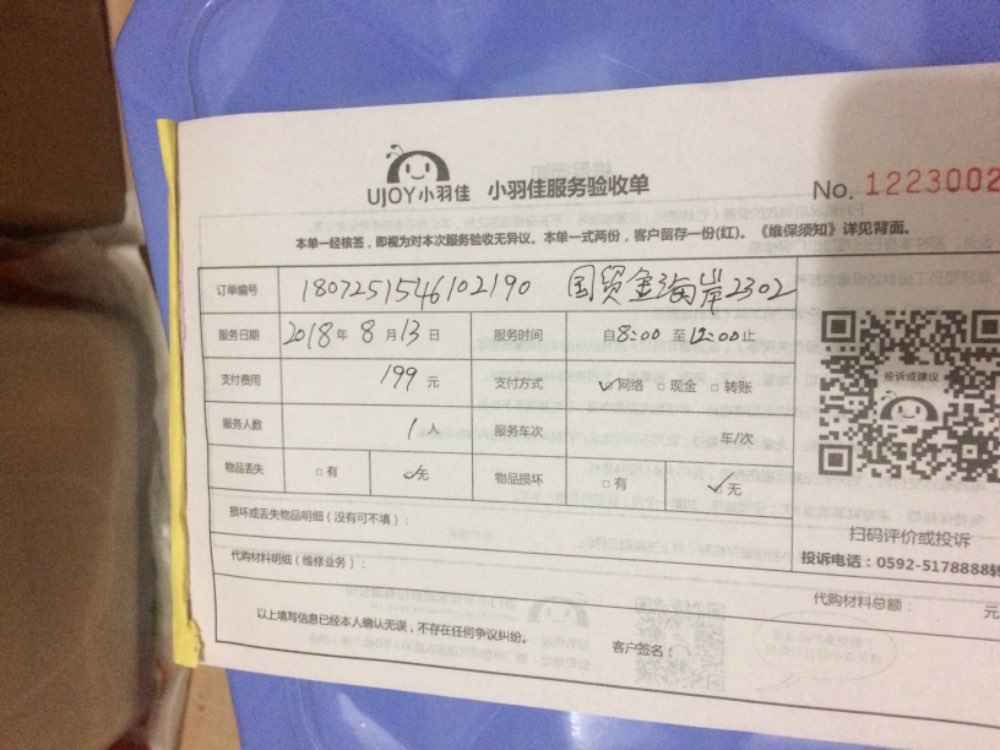 UJOY小羽佳 小羽佳服务验收单
No. 1223002
本单一经核签，即视为对本次服务验收无异议。本单一式两份，客户留存一份(红)。《维保须知》详见背面。
订单编号 1807251546102190 国贸金海岸2302
服务日期 2018年8月13日 服务时间 自8:00至12:00止
支付费用 199元 支付方式 ☑网络 □现金 □转账
服务人数 1人 服务车次 车/次
物品丢失 □有 ☑无 物品损坏 □有 ☑无
损坏或丢失物品明细（没有可不填）：
代购材料明细（维修业务）：
以上填写信息已经本人确认无误，不存在任何争议纠纷。
客户签名：
投诉或建议
扫码评价或投诉
投诉电话：0592-5178888转
代购材料总额： 元